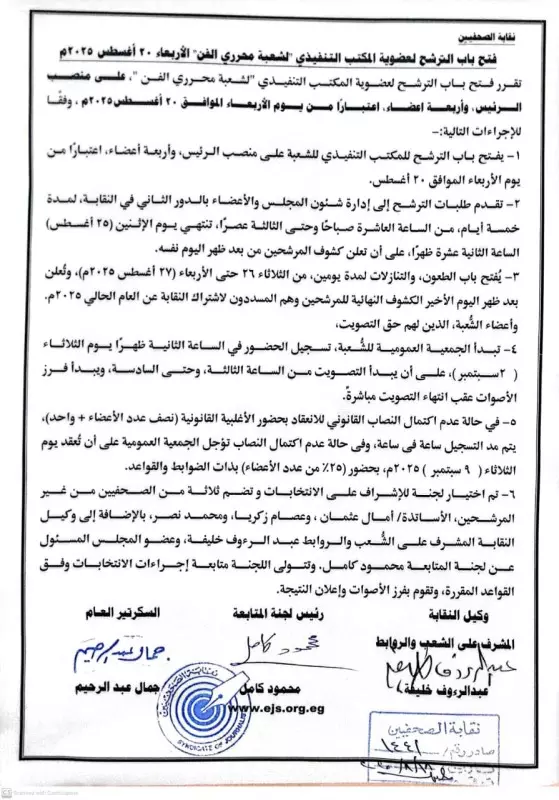 نقابة الصحفيين
فتح باب الترشح لعضوية المكتب التنفيذي "لشعبة محرري الفن" الأربعاء ٢٠ أغسطس ٢٠٢٥م
تقرر فتح باب الترشح لعضوية المكتب التنفيذي "لشعبة محرري الفن "، على منصب
الرئيس، وأربعة أعضاء، اعتبارًا من يوم الأربعاء الموافق ٢٠ أغسطس٢٠٢٥م، وفقًا
للإجراءات التالية:-
١- يفتح باب الترشح للمكتب التنفيذي للشعبة على منصب الرئيس، وأربعة أعضاء، اعتبارًا من
يوم الأربعاء الموافق ٢٠ أغسطس.
٢- تقدم طلبات الترشح إلى إدارة شئون المجلس والأعضاء بالدور الثاني في النقابة، لمدة
خمسة أيام، من الساعة العاشرة صباحًا وحتى الثالثة عصرًا، تنتهي يوم الإثنين (٢٥ أغسطس)
الساعة الثانية عشرة ظهرًا، على أن تعلن كشوف المرشحين من بعد ظهر اليوم نفسه.
٣- يُفتح باب الطعون، والتنازلات لمدة يومين، من الثلاثاء ٢٦ حتى الأربعاء (٢٧ أغسطس ٢٠٢٥م)، وتُعلن
بعد ظهر اليوم الأخير الكشوف النهائية للمرشحين وهم المسددون لاشتراك النقابة عن العام الحالي ٢٠٢٥م.
وأعضاء الشُعبة، الذين لهم حق التصويت.
٤- تبدأ الجمعية العمومية للشُعبة، تسجيل الحضور في الساعة الثانية ظهرًا يوم الثلاثاء
( ٢سبتمبر)، على أن يبدأ التصويت من الساعة الثالثة، وحتى السادسة، ويبدأ فرز
الأصوات عقب انتهاء التصويت مباشرةً.
٥- في حالة عدم اكتمال النصاب القانوني للانعقاد بحضور الأغلبية القانونية (نصف عدد الأعضاء + واحد)،
يتم مد التسجيل ساعة فى ساعة، وفى حالة عدم اكتمال النصاب تؤجل الجمعية العمومية على أن تُعقد يوم
الثلاثاء ( ٩ سبتمبر ) ٢٠٢٥م، بحضور (٢٥٪ من عدد الأعضاء) بذات الضوابط والقواعد.
٦- تم اختيار لجنة للإشراف على الانتخابات و تضم ثلاثة من الصحفيين من غير
المرشحين، الأساتذة/ أمال عثمان ، وعصام زكريا، ومحمد نصر، بالإضافة إلى وكيل
النقابة المشرف على الشُعب والروابط عبد الرءوف خليفة، وعضو المجلس المسئول
عن لجنة المتابعة محمود كامل. وتتولى اللجنة متابعة إجراءات الانتخابات وفق
القواعد المقررة، وتقوم بفرز الأصوات وإعلان النتيجة.
وكيل النقابة رئيس لجنة المتابعة السكرتير العام
المشرف على الشعب والروابط
محمود كامل جمال عبد الرحيم
عبدالرءوف خليفة محمود كامل جمال عبد الرحيم
www.ejs.org.eg
SYNDICATE OF JOURNALISTS
نقابة الصحفيين
صادر رقم/ ١٤٤١
Scanned with CamScanner